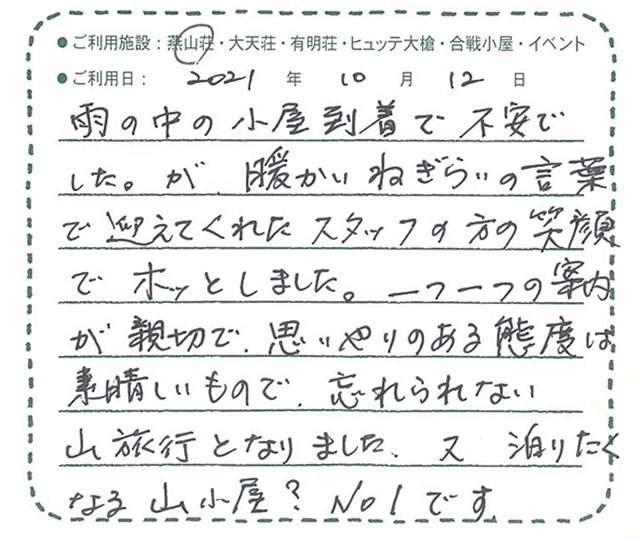 ●ご利用施設：燕山荘・大天荘・有明荘・ヒュッテ大槍・合戦小屋・イベント
●ご利用日： 2021 年 10 月 12 日
雨の中の小屋到着で不安で
した。が、暖かいねぎらいの言葉
で迎えてくれたスタッフの方の笑顔
でホッとしました。一つ一つの案内
が親切で、思いやりのある態度は
素晴しいもので、忘れられない
山旅行となりました、又 泊りたく
なる山小屋？No1です。